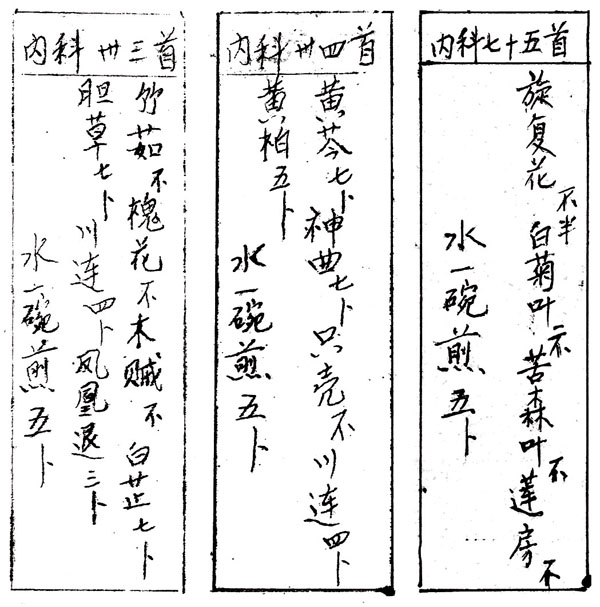 内科七十五首
旋复花不半白菊叶不苦森叶不莲房不
水一碗煎五卜
内科卅四首
黄芩七卜神曲七卜只壳不川连四卜
黄柏五卜
水一碗煎五卜
内科卅三首
竹茹不槐花不木贼不白芷七卜
胆草七卜川连四卜凤凰退三卜
水一碗煎五卜